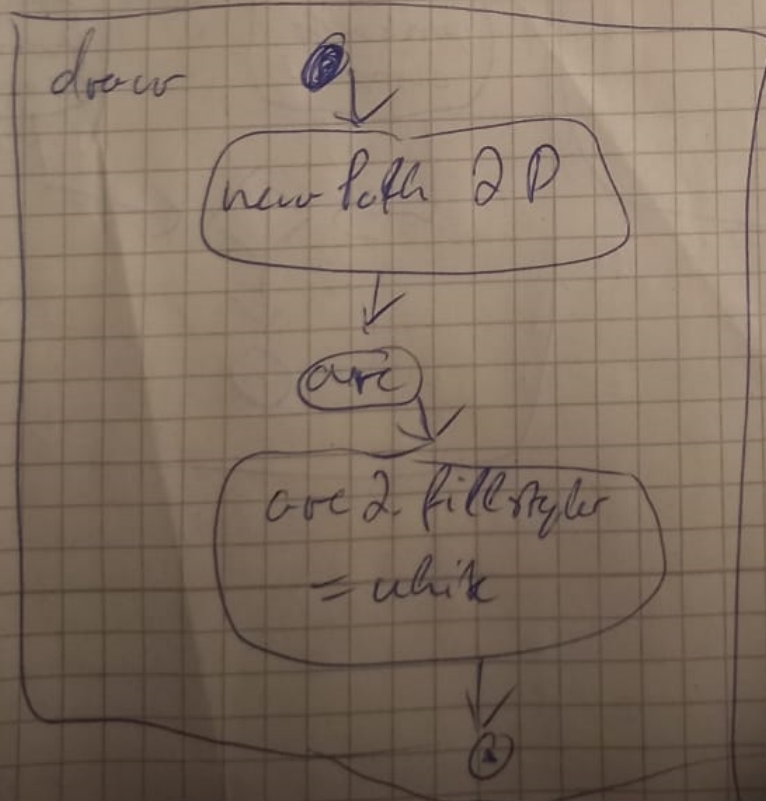 draw
new Path 2D
arc
arc2.fillstyle
= white